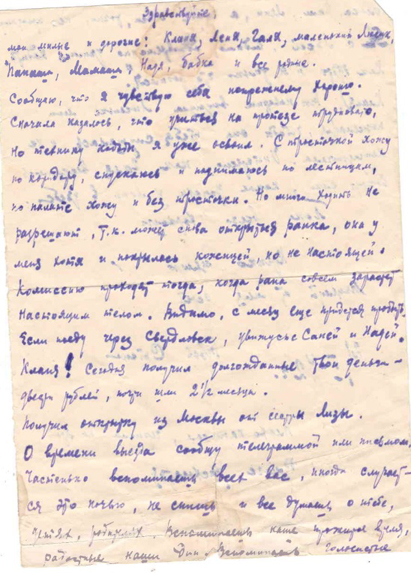 Здравствуйте,
мои милые и дорогие: Клава, Леня, Галя, маленький Лёнчик,
Папаша, Мамаша, Надя, бабка и все родные.
Сообщаю, что я чувствую себя попрежнему хорошо.
Сначала казалось, что учиться на протезе трудновато,
но технику ходьбы я уже освоил. С тросточкой хожу
по коридору, спускаюсь и поднимаюсь по лестницам,
по палате хожу и без тросточки. Но много ходить не
разрешают, т.к. может снова открыться ранка, она у
меня хотя и покрылась кожицей, но не настоящей.
Комиссию проходят тогда, когда рана совсем зарастет
настоящим телом. Видимо, с месяц еще придется пробыть.
Если поеду через Свердловск, увижусь с Саней и Надей.
Клава! Сегодня получил долгожданные твои деньги -
двести рублей, почти шли 2 1/2 месяца.
Получил открытку из Москвы от сестры Лизы.
О времени выезда сообщу телеграммой или письмом.
Частенько вспоминаешь всех вас, иногда случает-
ся это ночью, не спишь и все думаешь о тебе,
детях, родных. Вспоминаешь наше прожитое время,
радостные наши дни. Вспоминаешь